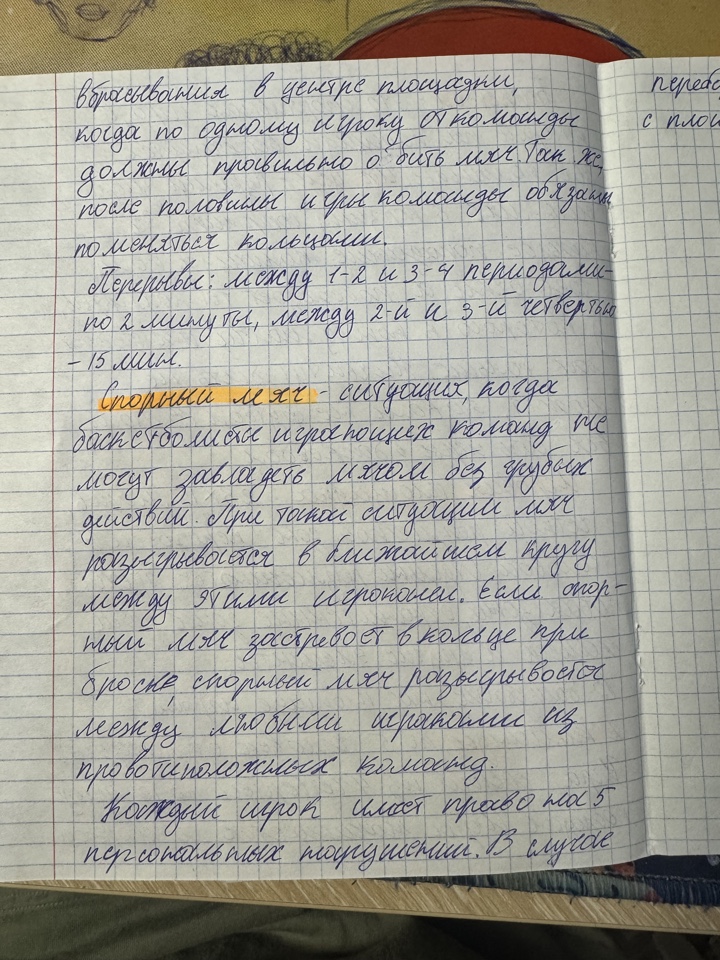 вбрасывания в центре площадки,
когда по одному игроку от команды
должны правильно отбить мяч. Так же,
после половины игры команды обязаны
поменяться кольцами.
Перерывы: между 1-2 и 3-4 периодами-
по 2 минуты, между 2-й и 3-й четвертью
- 15 мин.
Спорный мяч - ситуация, когда
баскетболисты играющих команд не
могут завладеть мячом без грубых
действий. При такой ситуации мяч
разыгрывается в ближайшем кругу
между этими игроками. Если спор-
ный мяч застревает в кольце при
броске, спорный мяч разыгрывается
между любыми игроками из
провотиположных команд.
Каждый игрок имеет право на 5
персональных нарушений. В случае
перебо
с площ